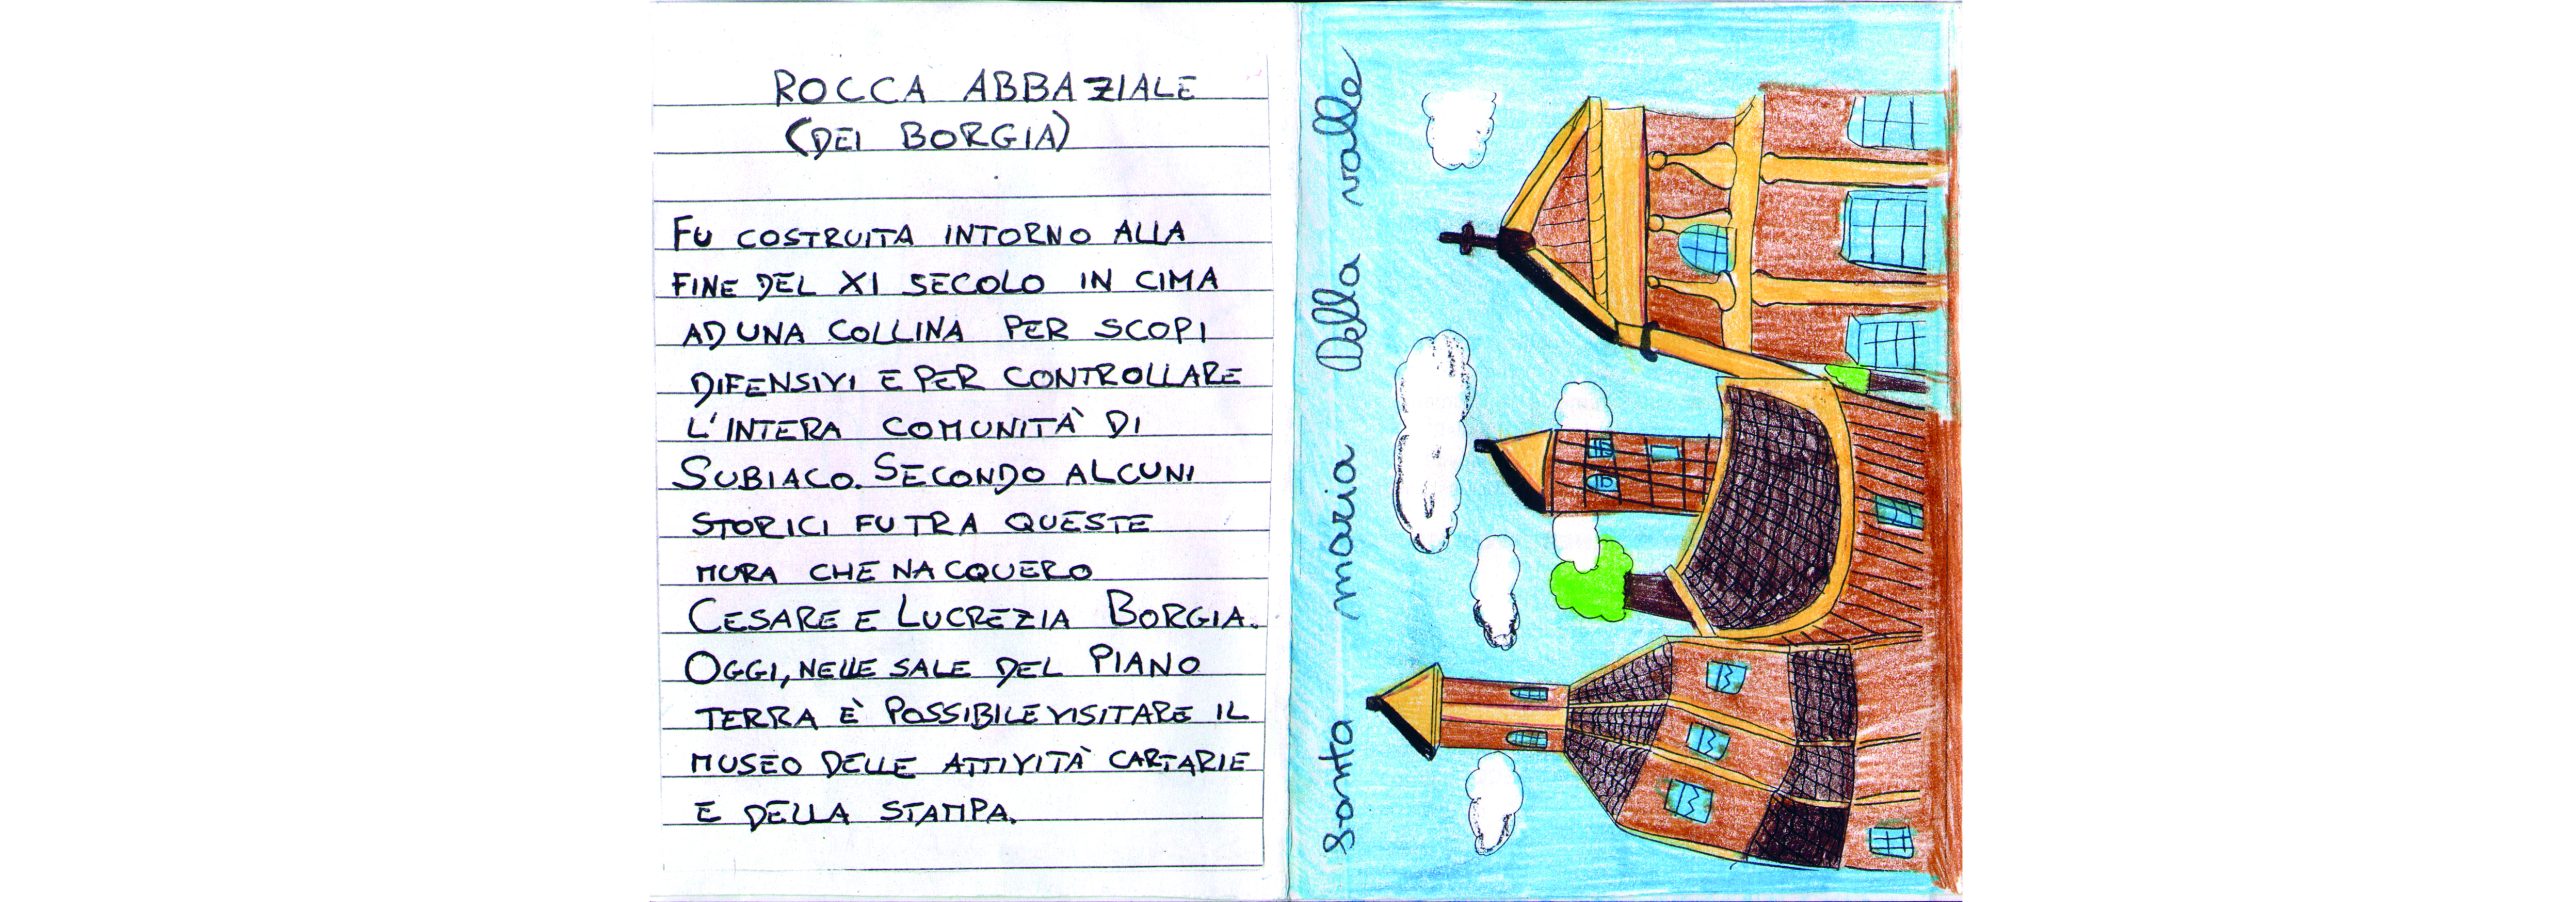 ROCCA ABBAZIALE
(DEI BORGIA)
FU COSTRUITA INTORNO ALLA
FINE DEL XI SECOLO IN CIMA
AD UNA COLLINA PER SCOPI
DIFENSIVI E PER CONTROLLARE
L'INTERA COMUNITÀ DI
SUBIACO. SECONDO ALCUNI
STORICI FU TRA QUESTE
MURA CHE NACQUERO
CESARE E LUCREZIA BORGIA.
OGGI, NELLE SALE DEL PIANO
TERRA È POSSIBILE VISITARE IL
MUSEO DELLE ATTIVITÀ CARTARIE
E DELLA STAMPA.
Santa maria Della valle